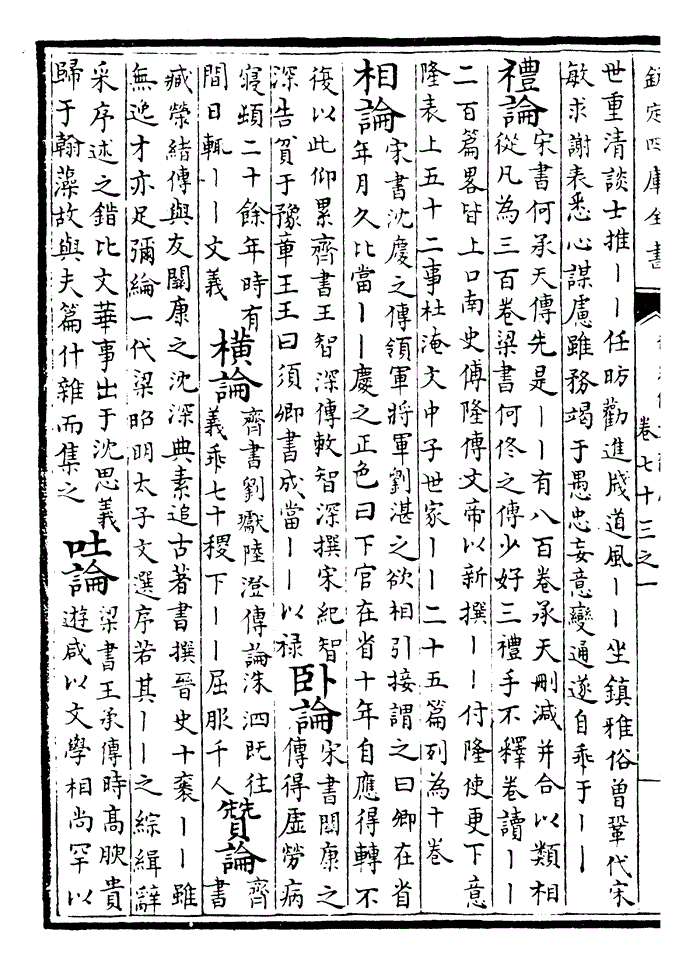 欽定四庫全書
卷七十三之一
世重清談士推丨丨任昉勸進牋道風丨丨坐鎮雅俗曾鞏代宋
敏求謝表悉心謀慮雖務竭于愚忠妄意變通遂自乖于丨丨
禮論
宋書何承天傳先是丨丨有八百卷承天刪減并合以類相
從凡為三百卷梁書何佟之傳少好三禮手不釋卷讀丨丨
二百篇畧皆上口南史傅隆傳文帝以新撰丨丨付隆使更下意
隆表上五十二事杜淹文中子世家丨丨二十五篇列為十卷
相論
宋書沈慶之傳領軍將軍劉湛之欲相引接謂之曰卿在省
年月久比當丨丨慶之正色曰下官在省十年自應得轉不
復以此仰累齊書王智深傳敕智深撰宋紀智
深告貧于豫章王王曰須卿書成當丨丨以祿
臥論
宋書關康之
傳得虛勞病
寢頓二十餘年時有
間日輒丨丨文義
橫論
齊書劉瓛陸澄傳論洙泗既往
義乖七十稷下丨丨屈服千人
贊論
齊
書
臧榮緒傳與友關康之沈深典素追古著書撰晉史十袠丨丨雖
無逸才亦足彌綸一代梁昭明太子文選序若其丨丨之綜緝辭
采序述之錯比文華事出于沈思義
歸于翰藻故與夫篇什雜而集之
吐論
梁書王承傳時髙腴貴
遊咸以文學相尚罕以